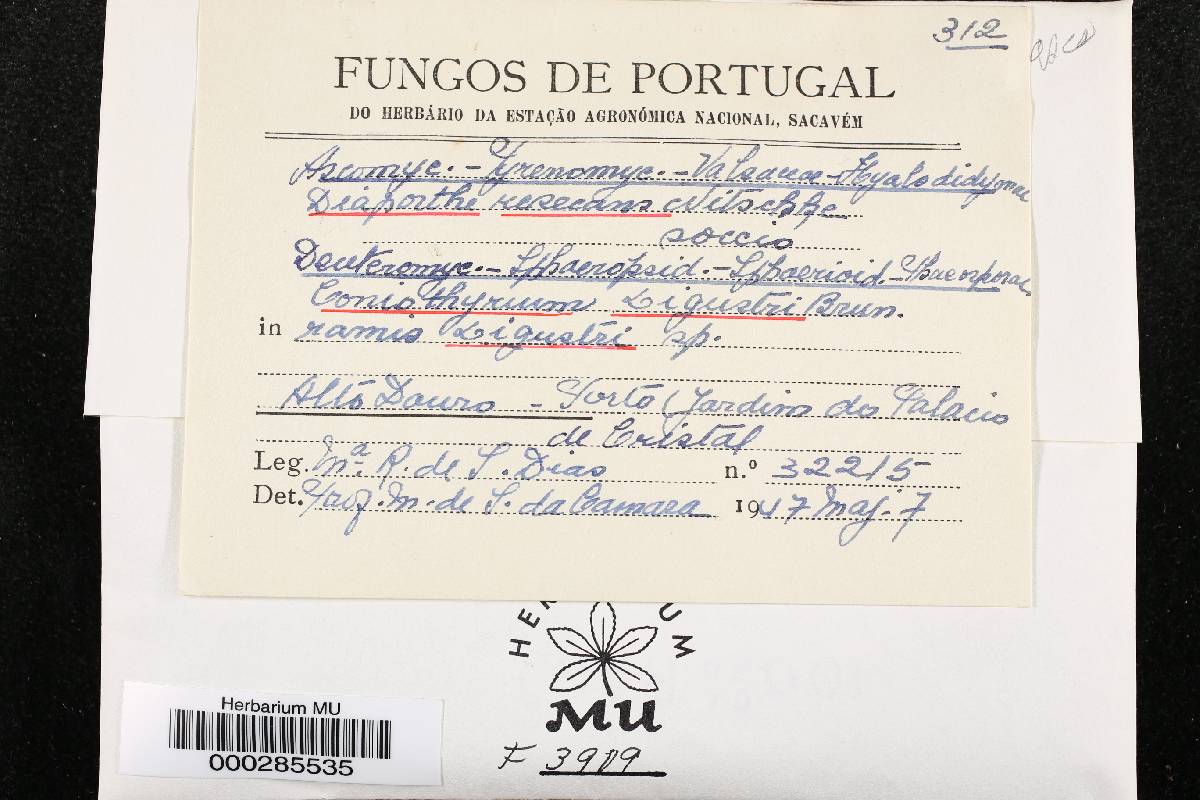 312
FUNGOS DE PORTUGAL
DO HERBÁRIO DA ESTAÇÃO AGRONÓMICA NACIONAL, SACAVÉM
Ascomyc. - Pyrenomyc. - Valsaceæ - Hyalodidymae
Diaporthe resecans Nitschke
soccio
Deuteromyc. - Sphaeropsid. - Sphaerioid. - Phaeosporae
Coniothyrium Ligustri Brun.
in ramis Ligustri sp.
Alto Douro - Porto (Jardins do Palacio
de Cristal
Leg. Mª. R. de S. Dias n.º 32215
Det. Prof. M. de S. da Camara 1947 Maj. 7
HER UM
MU
Herbarium MU
000285535
F 3919